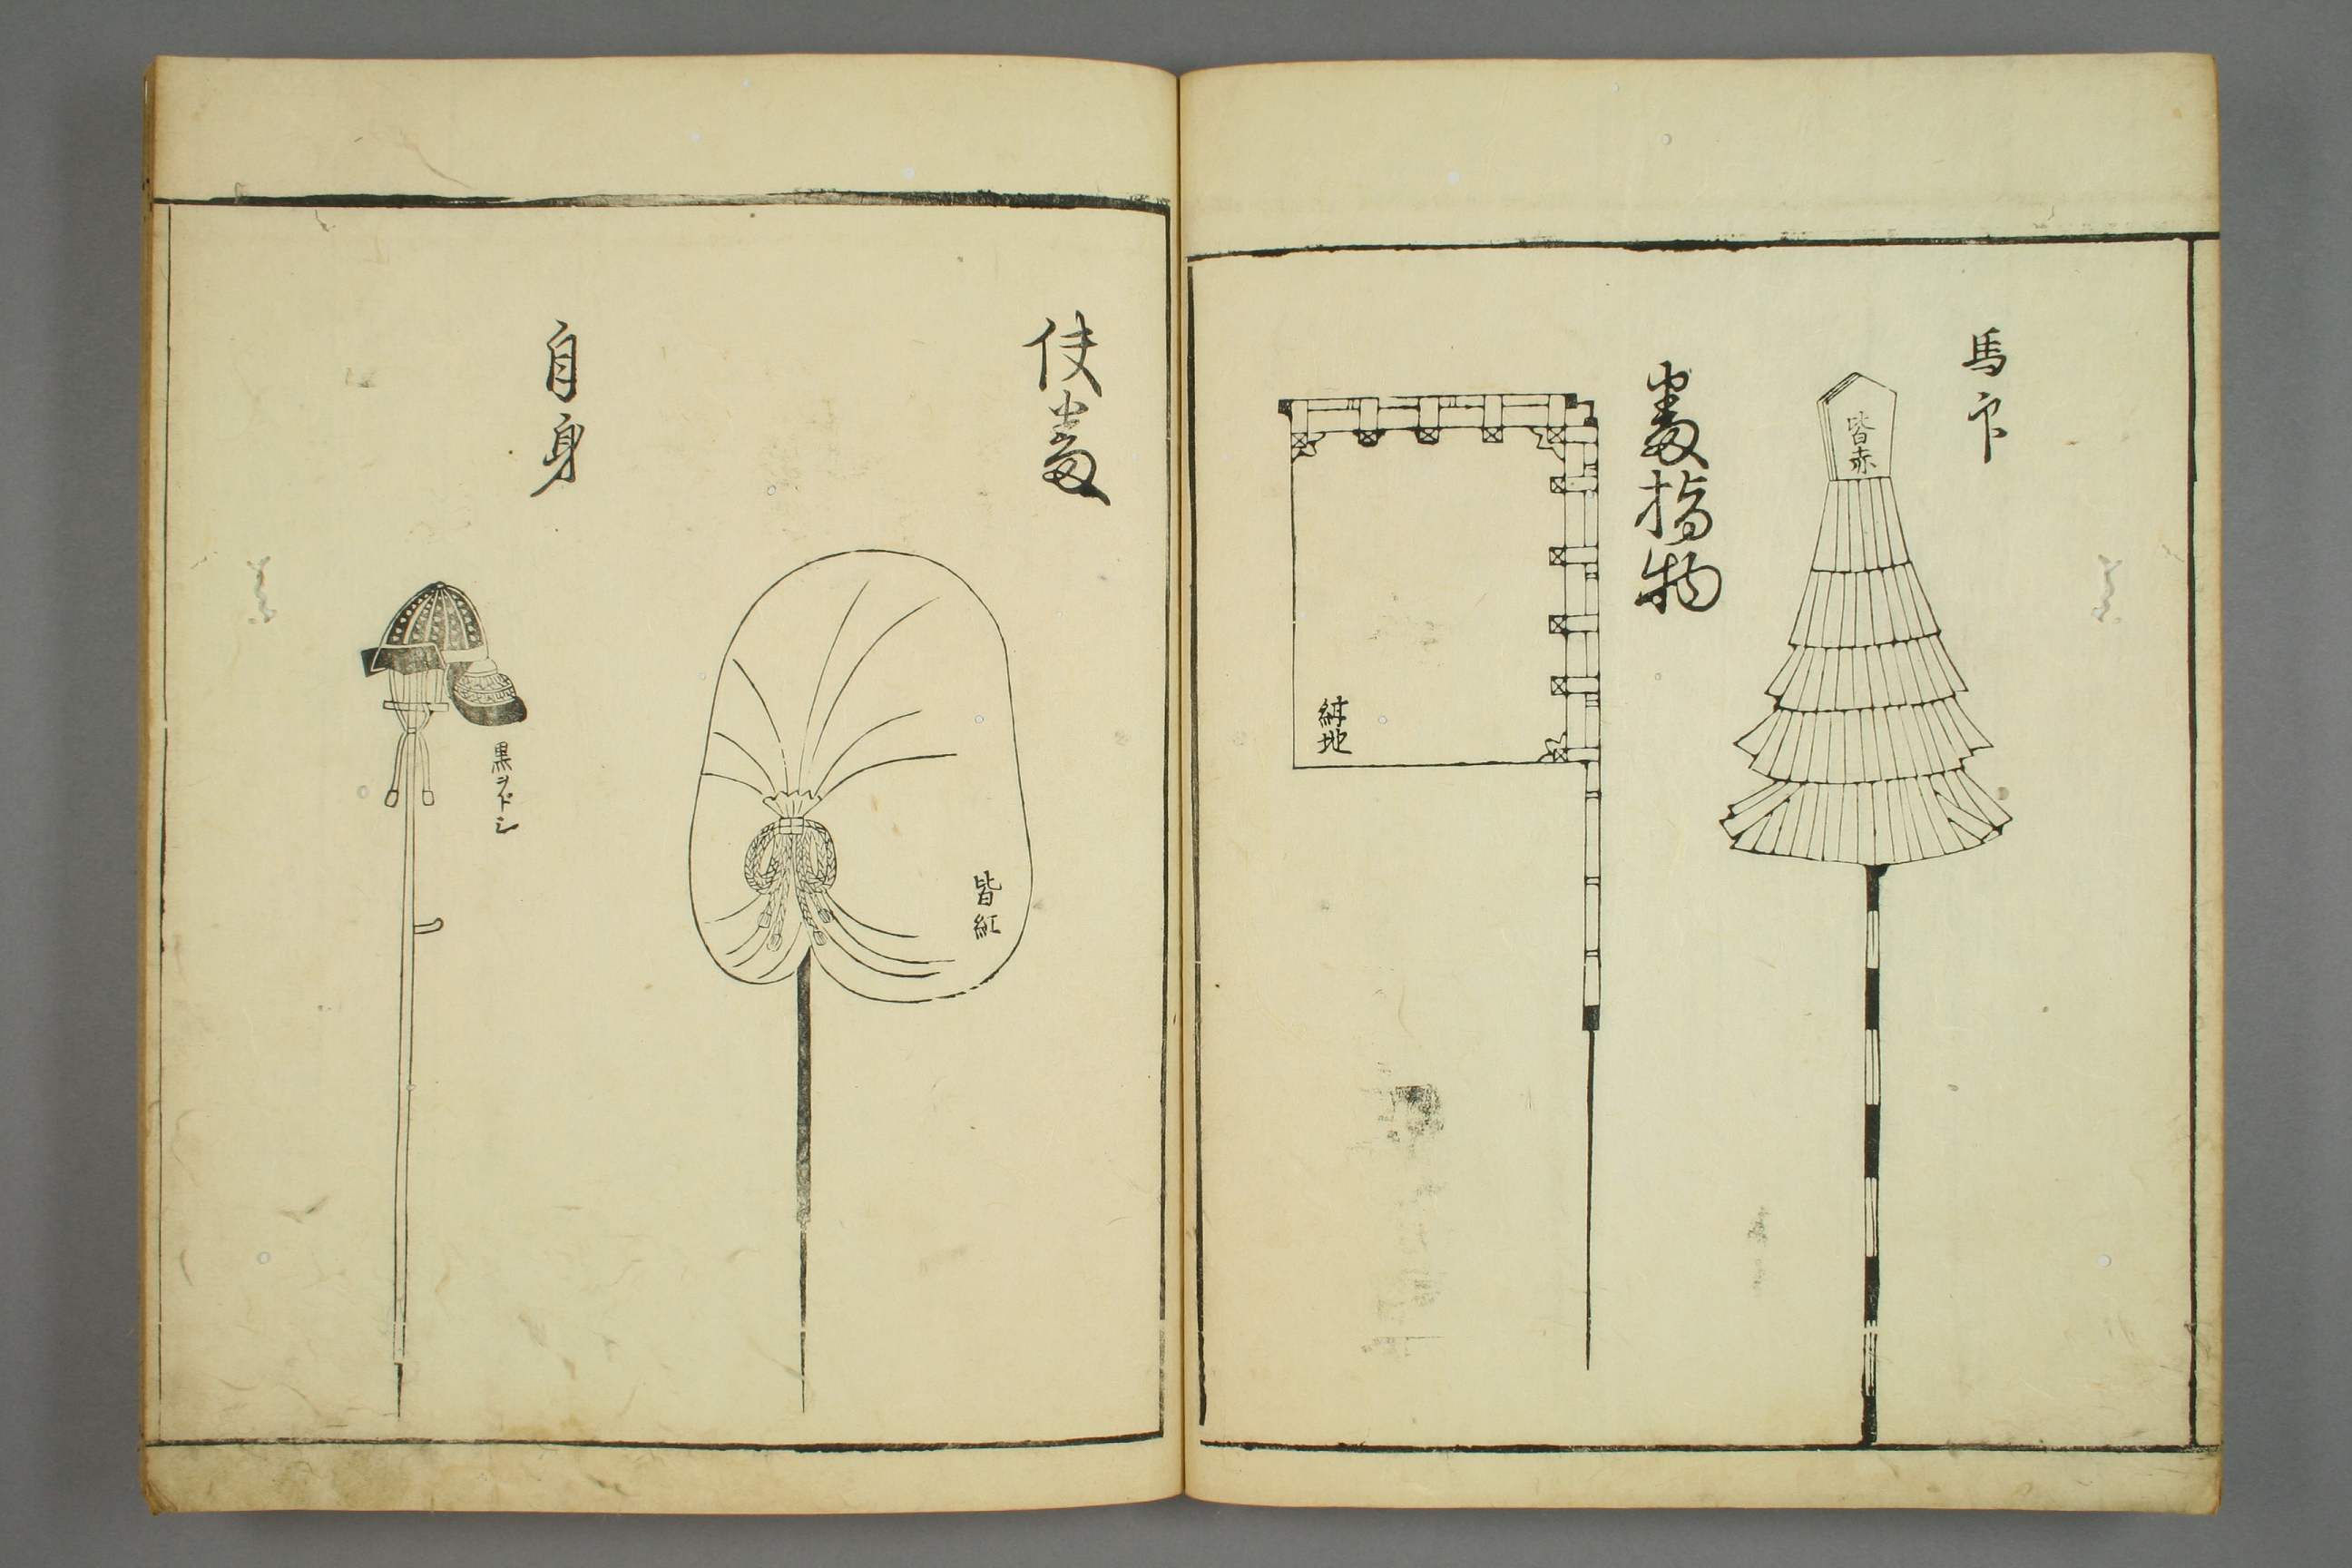 馬印
皆赤
番指物
紺地
使番
皆紅
自身
黒ヲドシ